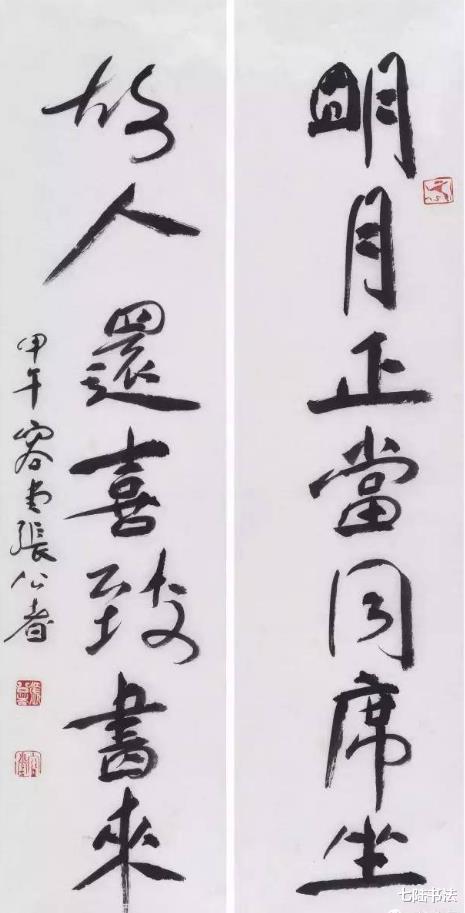 明月正當同席坐
故人還喜致書來
甲午容堂張公者
七陆书法